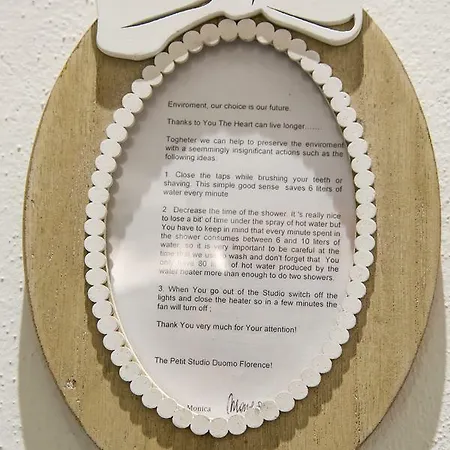 Enviroment, our choice is our future.
Thanks to You The Heart can live longer......
Togheter we can help to preserve the enviroment
with a seemmingly insignificant actions such as the
following ideas
1. Close the taps while brushing your teeth or
shaving. This simple good sense saves 6 liters of
water every minute
2. Decrease the time of the shower. it 's really nice
to lose a bit of time under the spray of hot water but
You have to keep in mind that every minute spent in
the shower consumes between 6 and 10 liters of
water, so it is very important to be careful at the
time that we use to wash and don't forget that You
only 80 of hot water produced by the
water heater more than enough to do two showers.
3. When You go out of the Studio switch off the
lights and close the heater so in a few minutes the
fan will turn off ;
Thank You very much for Your attention!
The Petit Studio Duomo Florence!
Monica